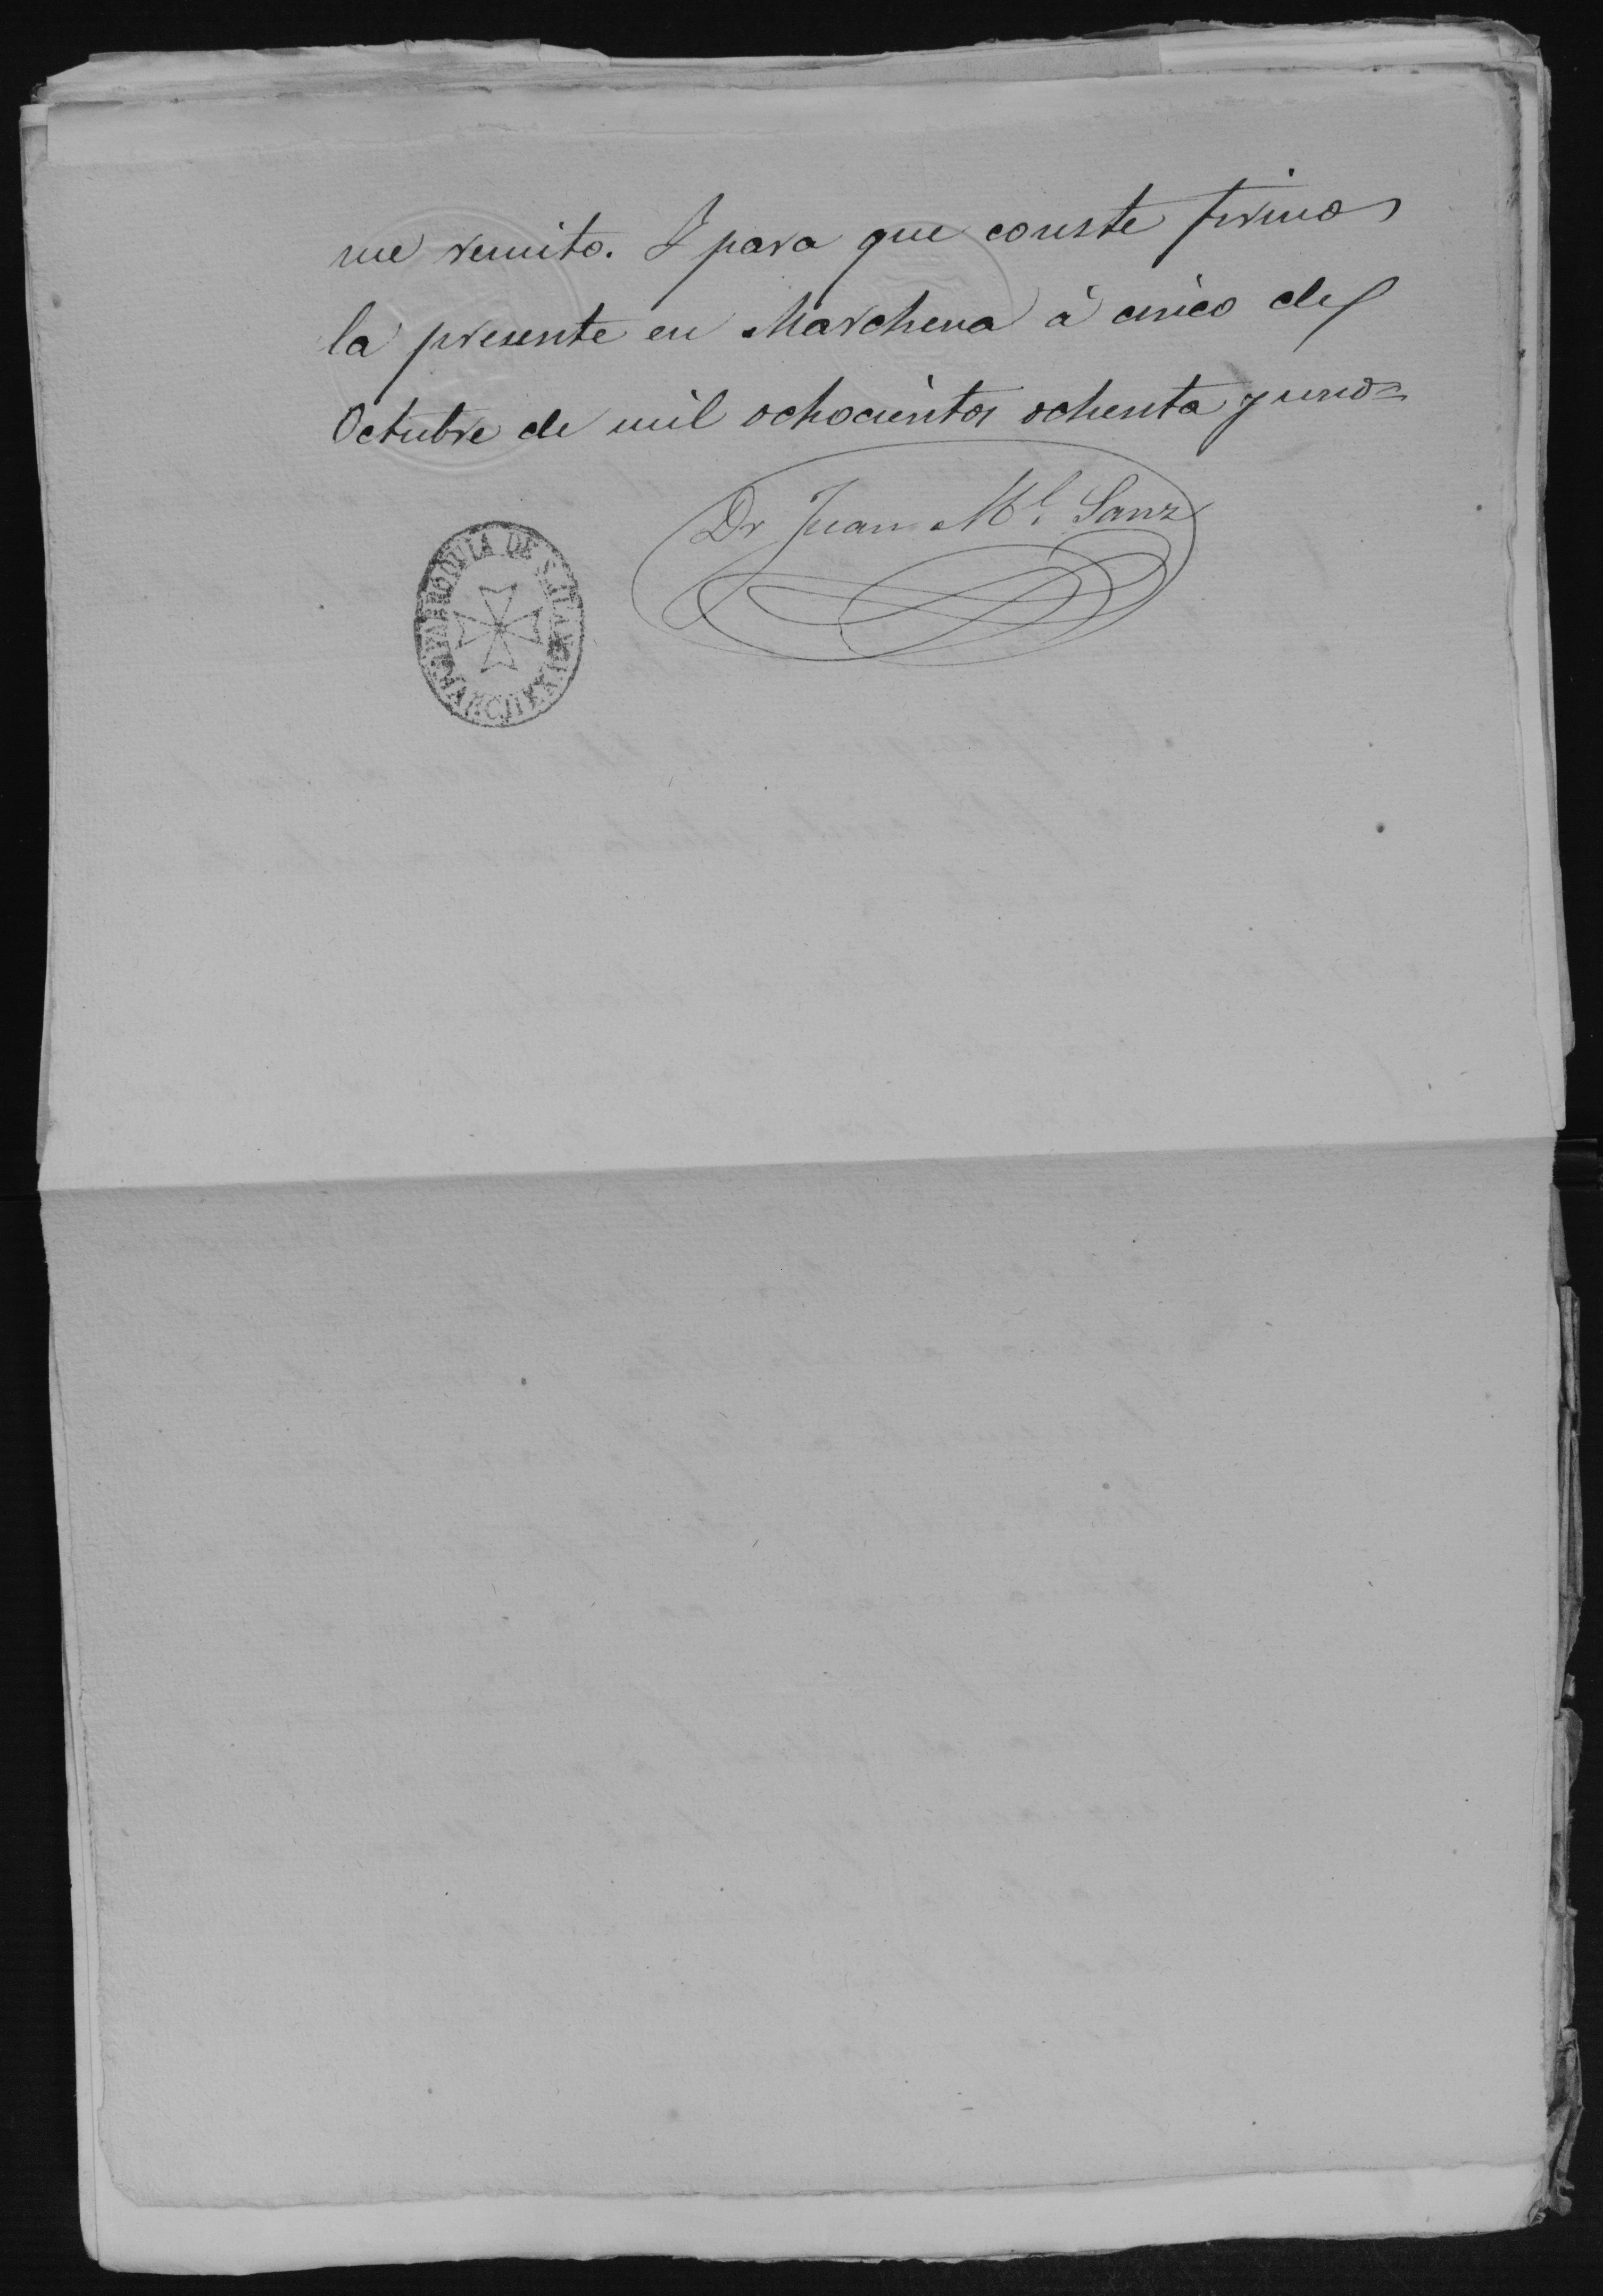 me remito. Y para que conste firmo
la presente en Marchena á cinco de
Octubre de mil ochocientos ochenta y uno=
Dr Juan Ml. Sanz
PARROQUIA DE S. JUAN
MARCHENA